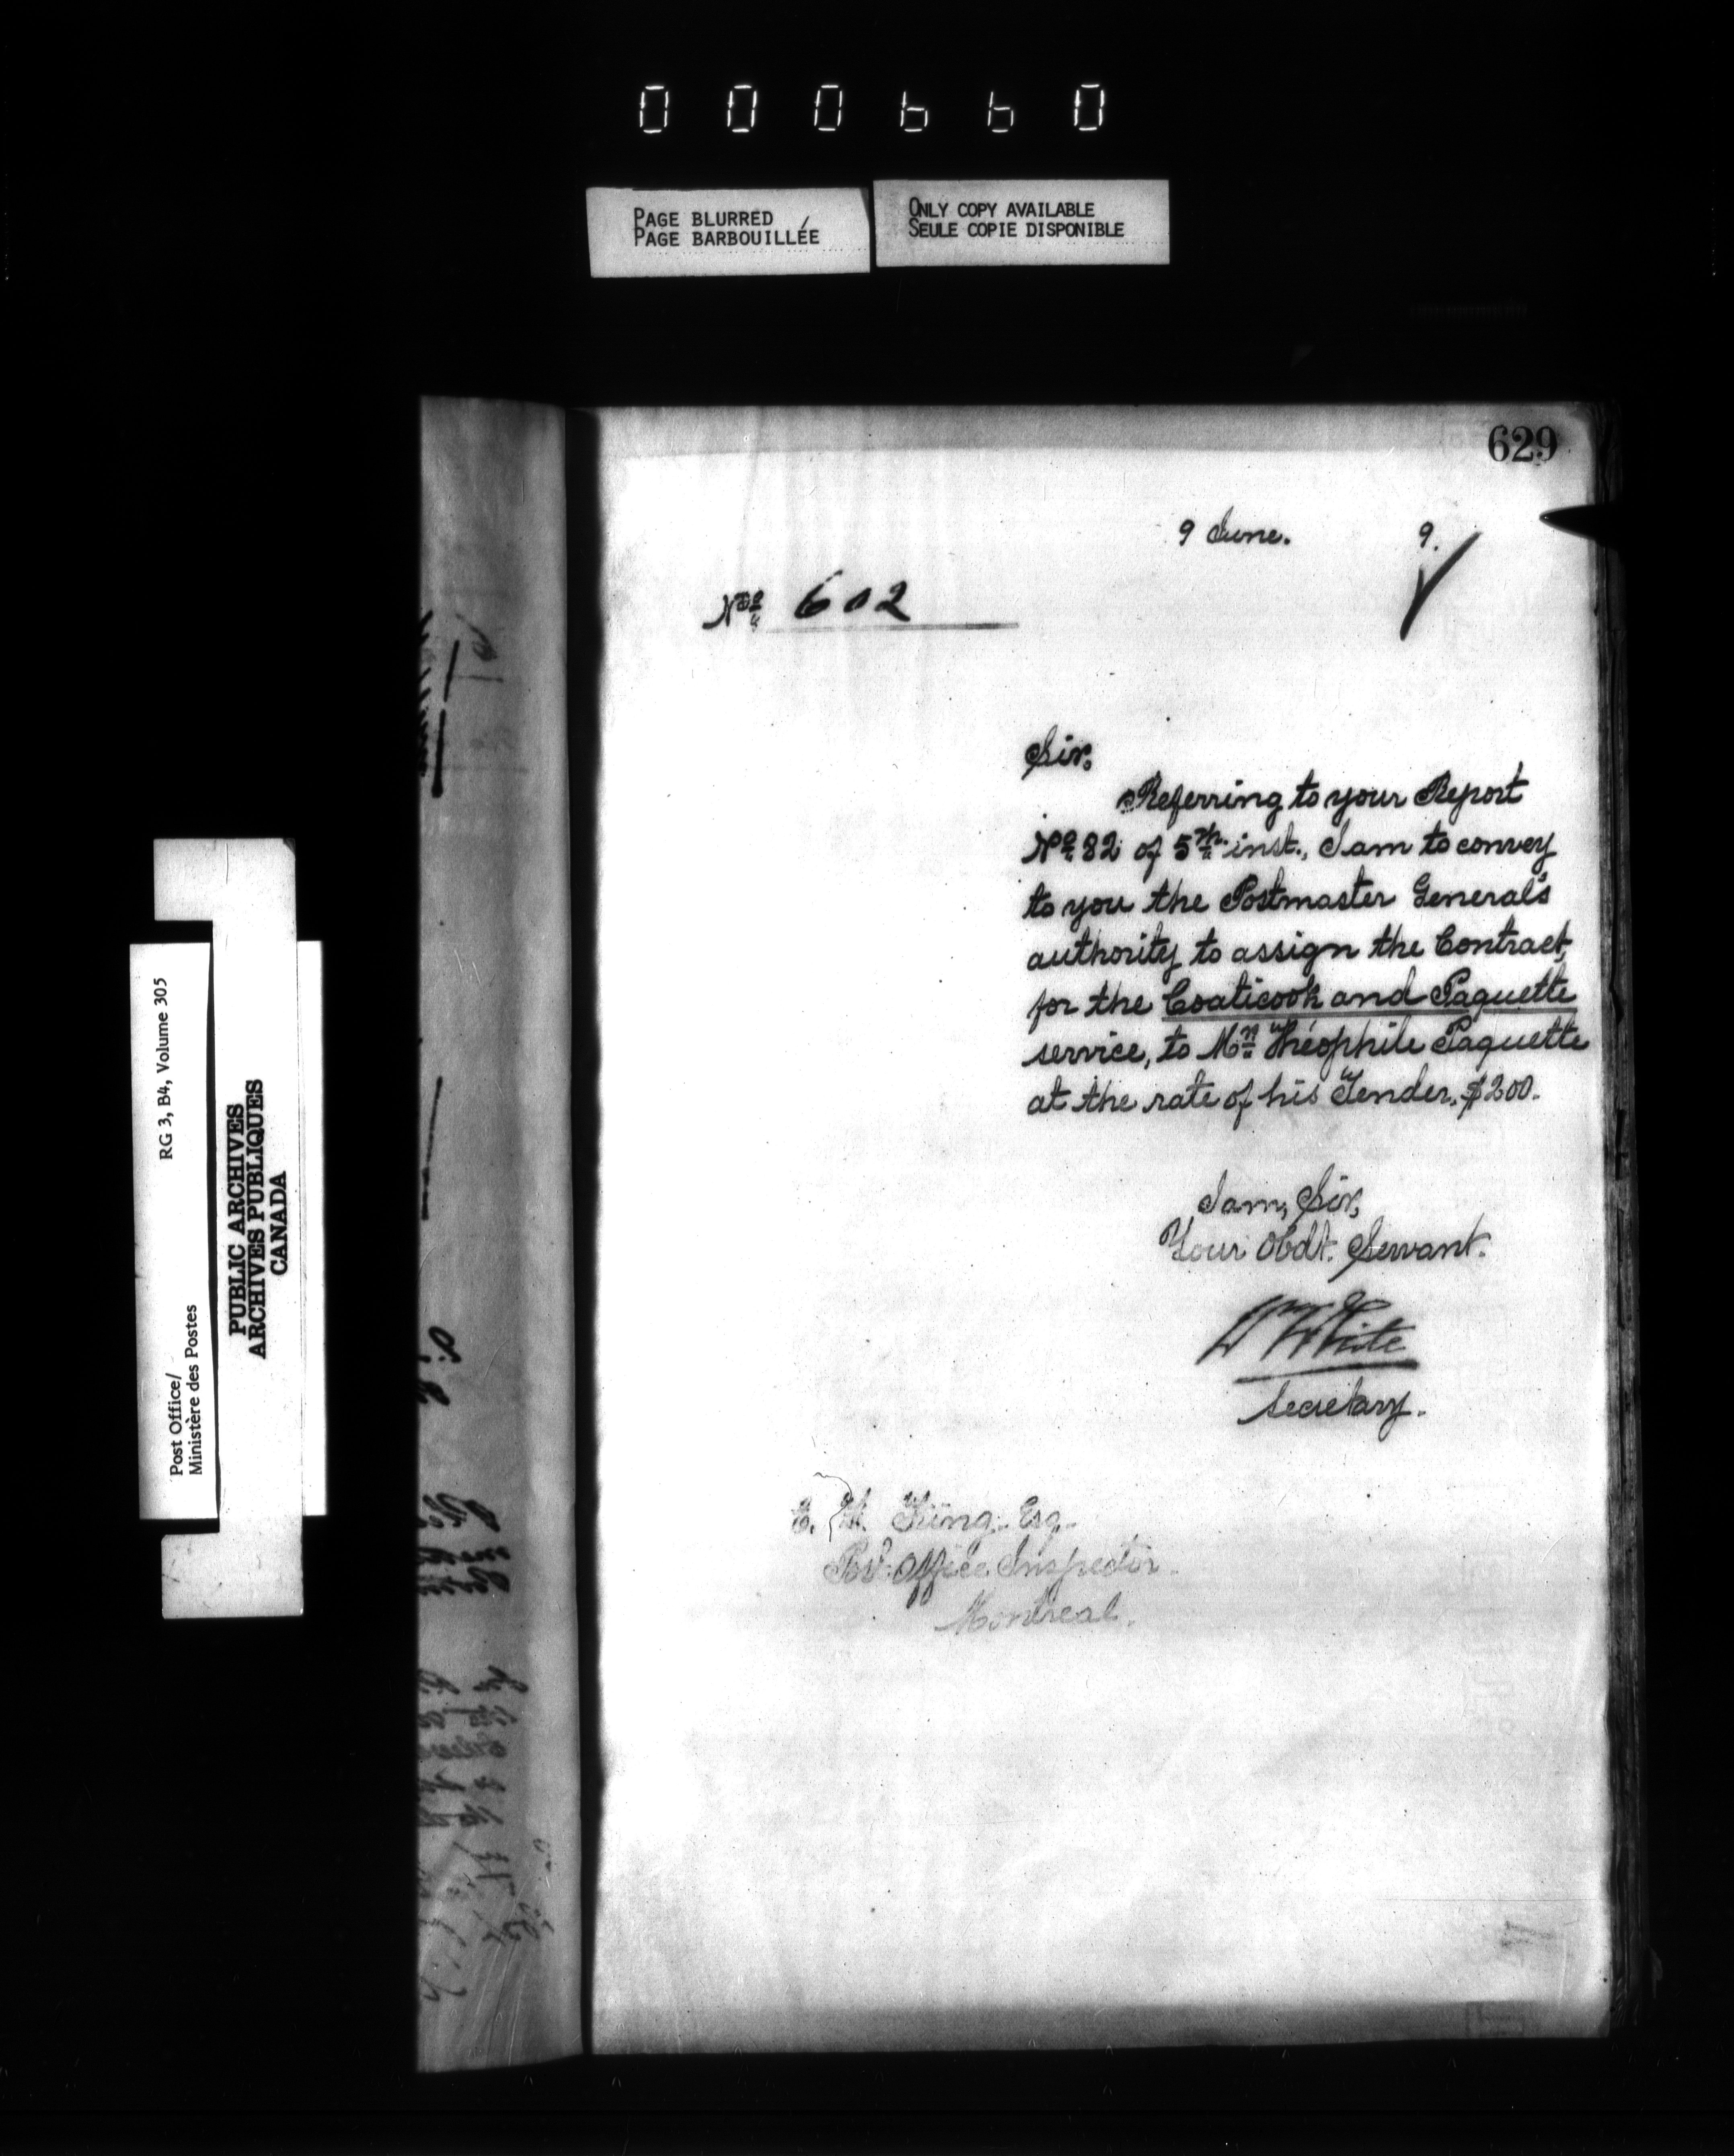 000660
PAGE BLURRED
PAGE BARBOUILLÉE
ONLY COPY AVAILABLE
SEULE COPIE DISPONIBLE
629
9 June. 9.
No. 602
Sir,
Referring to your Report
No. 82 of 5th inst., I am to convey
to you the Postmaster General's
authority to assign the Contract,
for the Coaticook and Paquette
service, to Mr. Théophile Paquette
at the rate of his Tender, $200.
I am, Sir,
Your Obdt. Servant.
White
Secretary.
King, Esq.
Post Office Inspector.
Montreal.
Post Office/
Ministère des Postes
RG 3, B4, Volume 305
PUBLIC ARCHIVES
ARCHIVES PUBLIQUES
CANADA